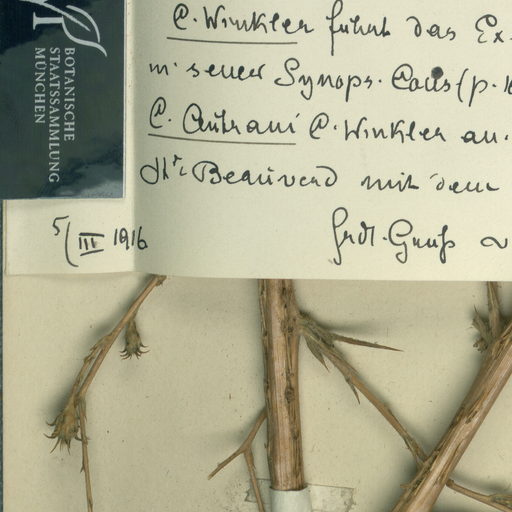 C. Winkler führt das Ex-
in seiner Synops. Cous (p. 1
C. Autrani C. Winkler an.
Hr Beauverd mit dem
frdl. Gruß
5/III 1916
BOTANISCHE
STAATSSAMMLUNG
MÜNCHEN